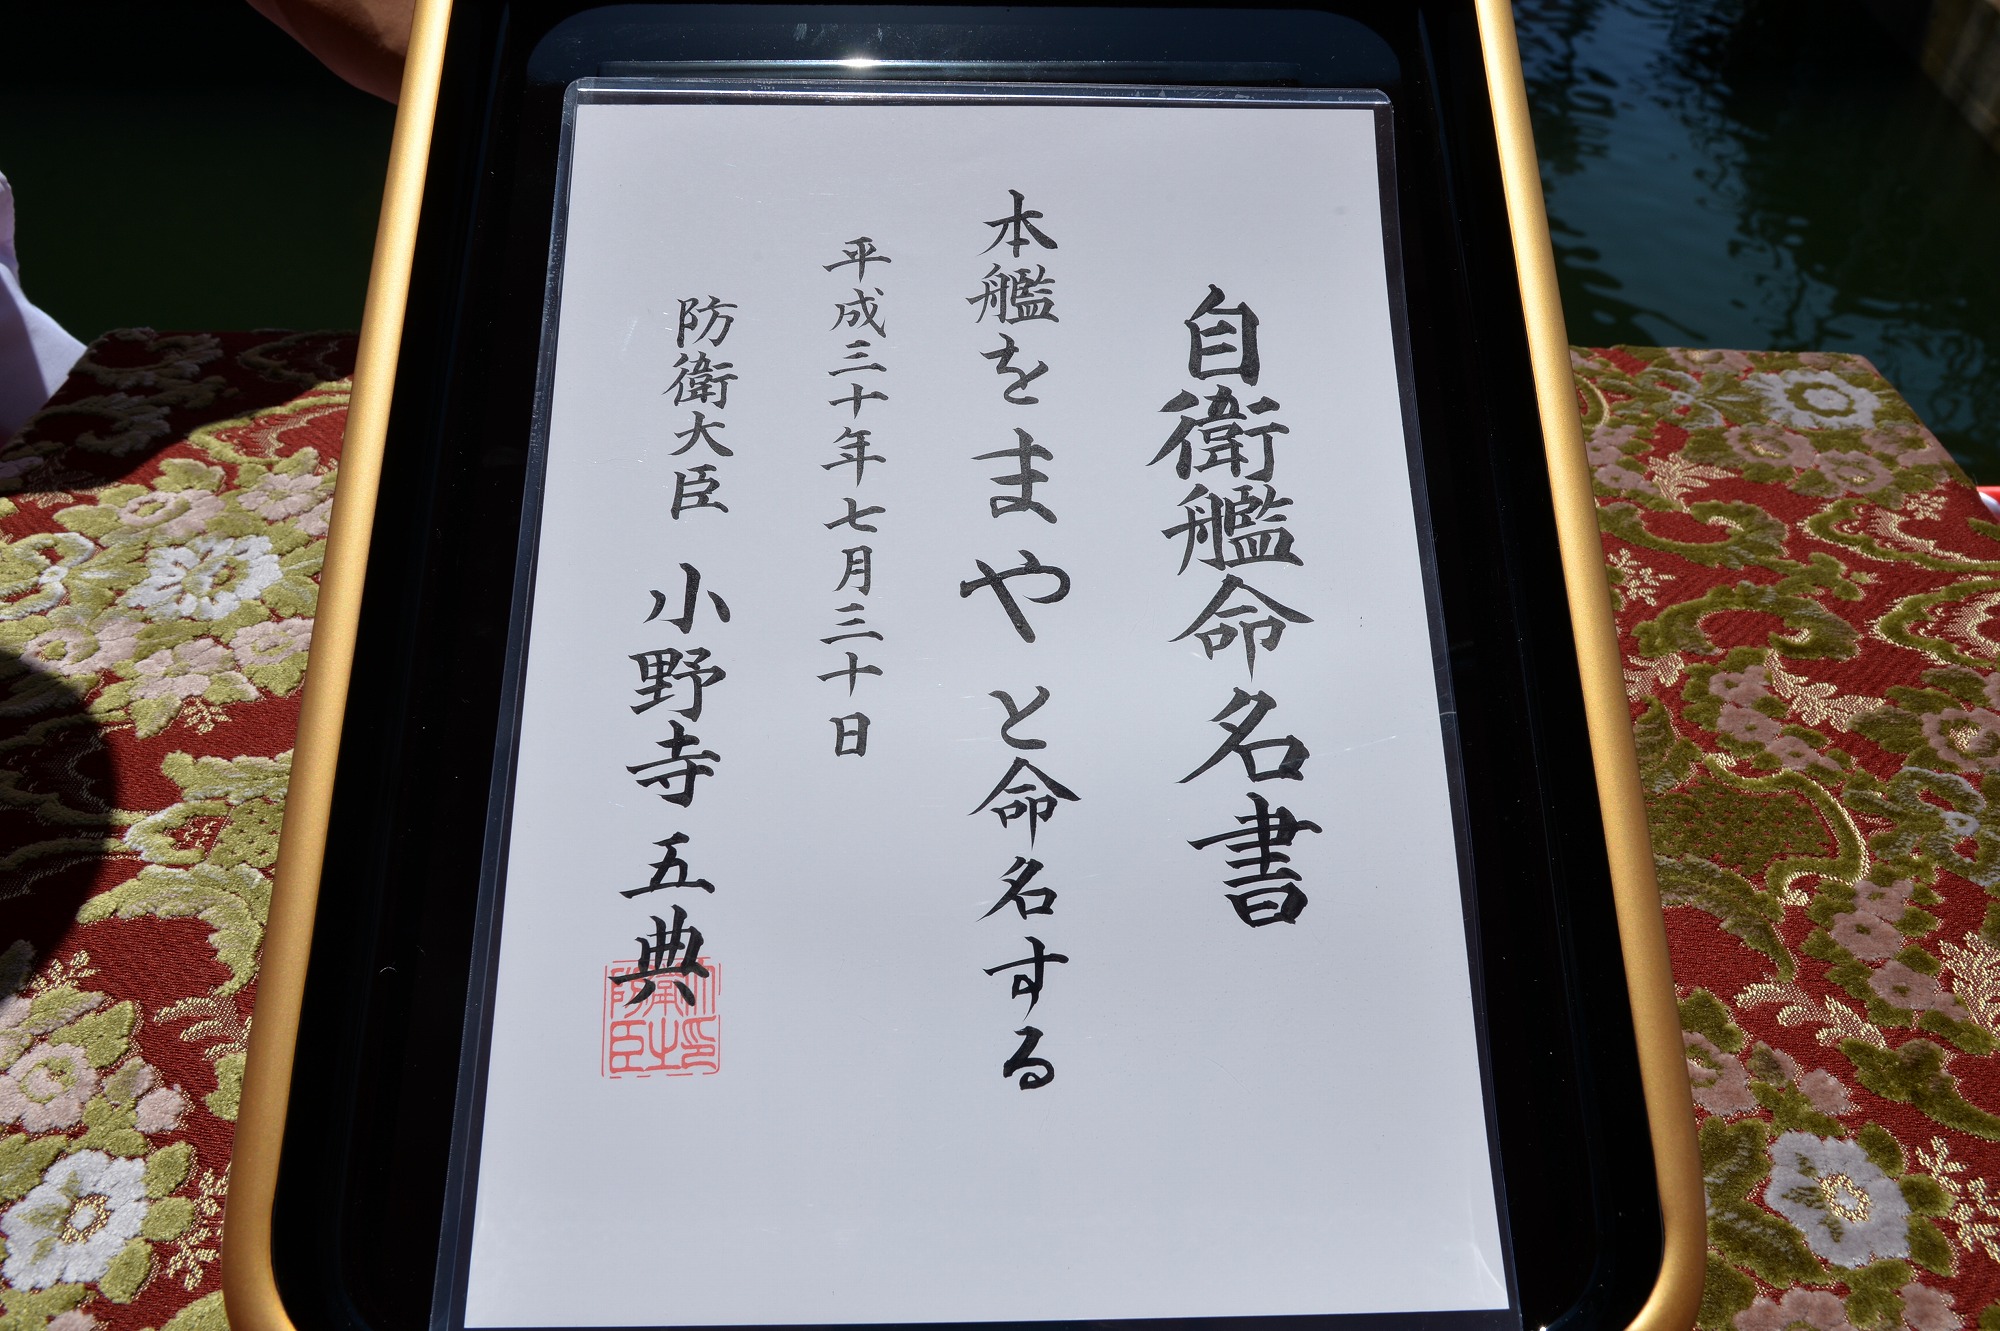 自衛艦命名書
本艦をまやと命名する
平成三十年七月三十日
防衛大臣 小野寺五典
防衛大臣之印